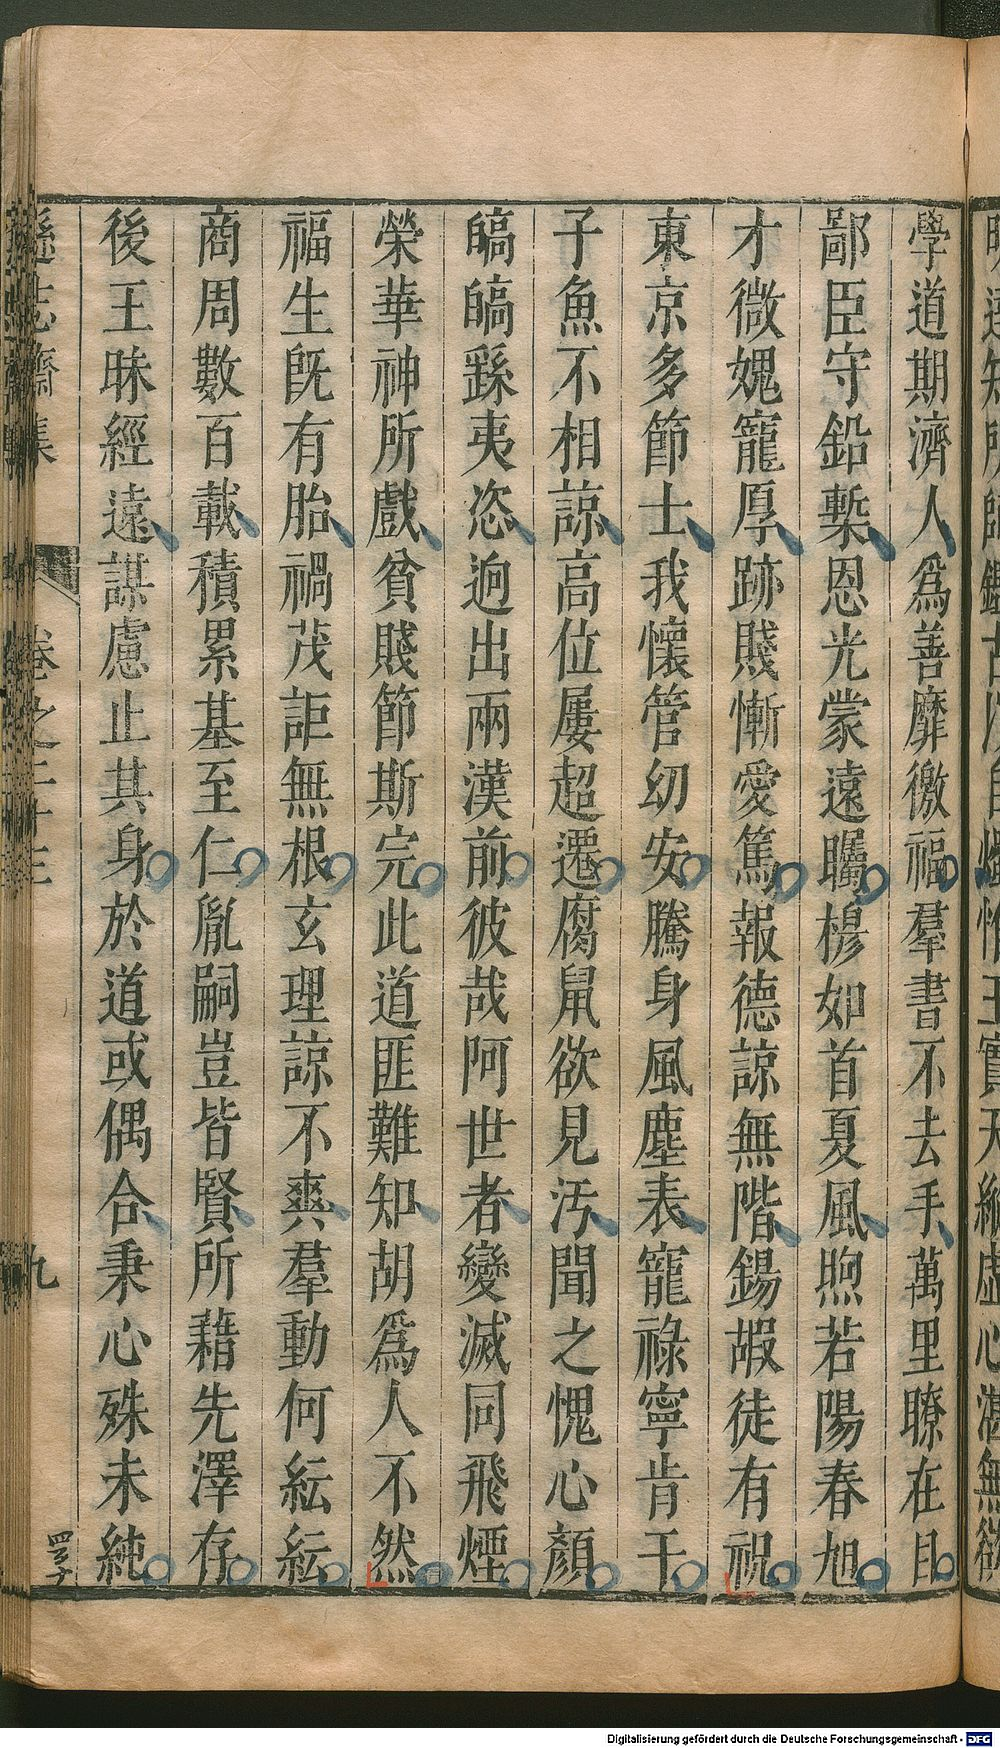 學道期濟人爲善靡徼福羣書不去手萬里瞭在目
鄙臣守鉛槧恩光蒙遠矚穆如首夏風煦若陽春旭
才微媿寵厚跡賤慚愛篤報德諒無階錫嘏徒有祝
東京多節士我懷管幼安騰身風塵表寵祿寧肯干
子魚不相諒高位屢超遷腐鼠欲見汚聞之愧心顏
皜皜繇夷恣逈出兩漢前彼哉阿世者變滅同飛煙
榮華神所戲貧賤節斯完此道匪難知胡爲人不然
福生旣有胎禍茂詎無根玄理諒不爽羣動何紜紜
商周數百載積累基至仁胤嗣豈皆賢所藉先澤存
後王昧經遠謀慮止其身於道或偶合秉心殊未純
遜志齋集
卷之二十三
九
Digitalisierung gefördert durch die Deutsche Forschungsgemeinschaft - DFG